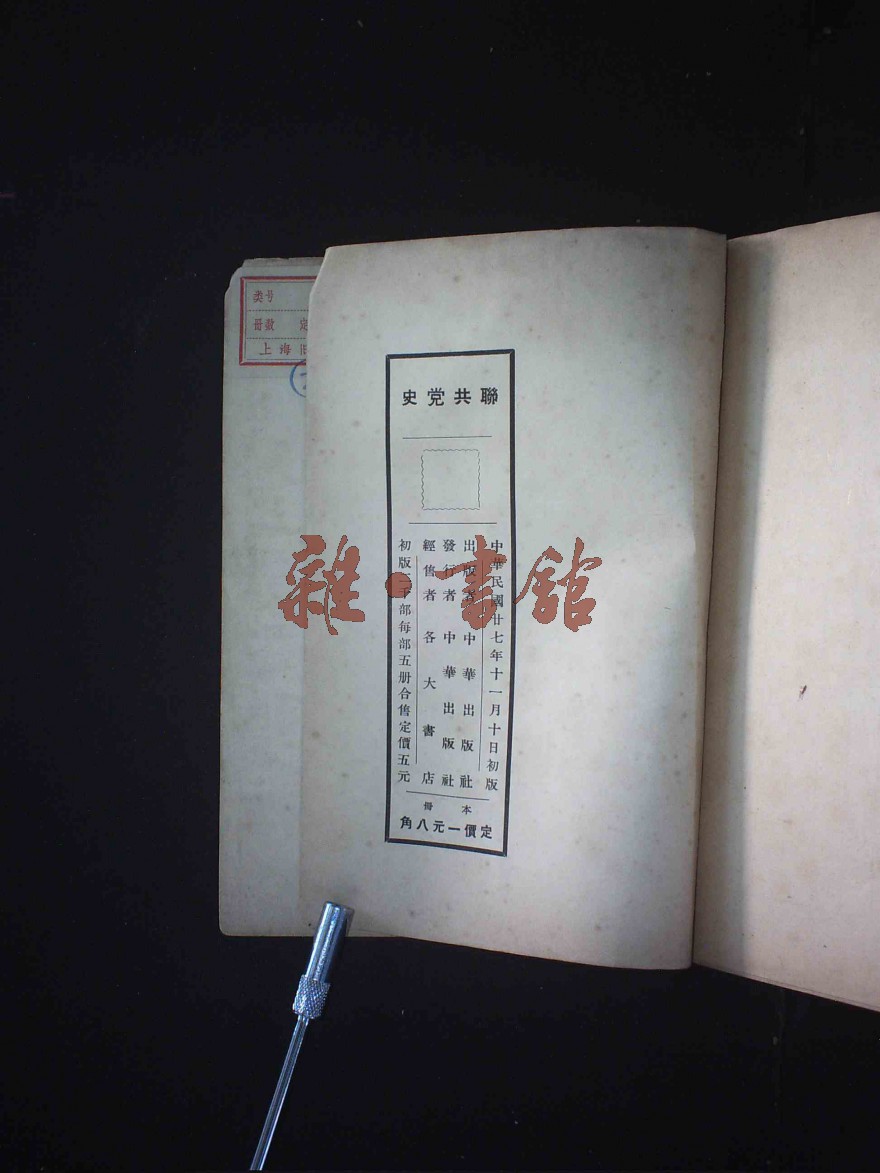 聯共党史
中華民國廿七年十一月十日初版
出版者 中華出版社
發行者 中華出版社
經售者 各大書店
初版 千部每部五册合售定價五元
本册
定價一元八角
类号
冊数 定
上海旧
雜·書館